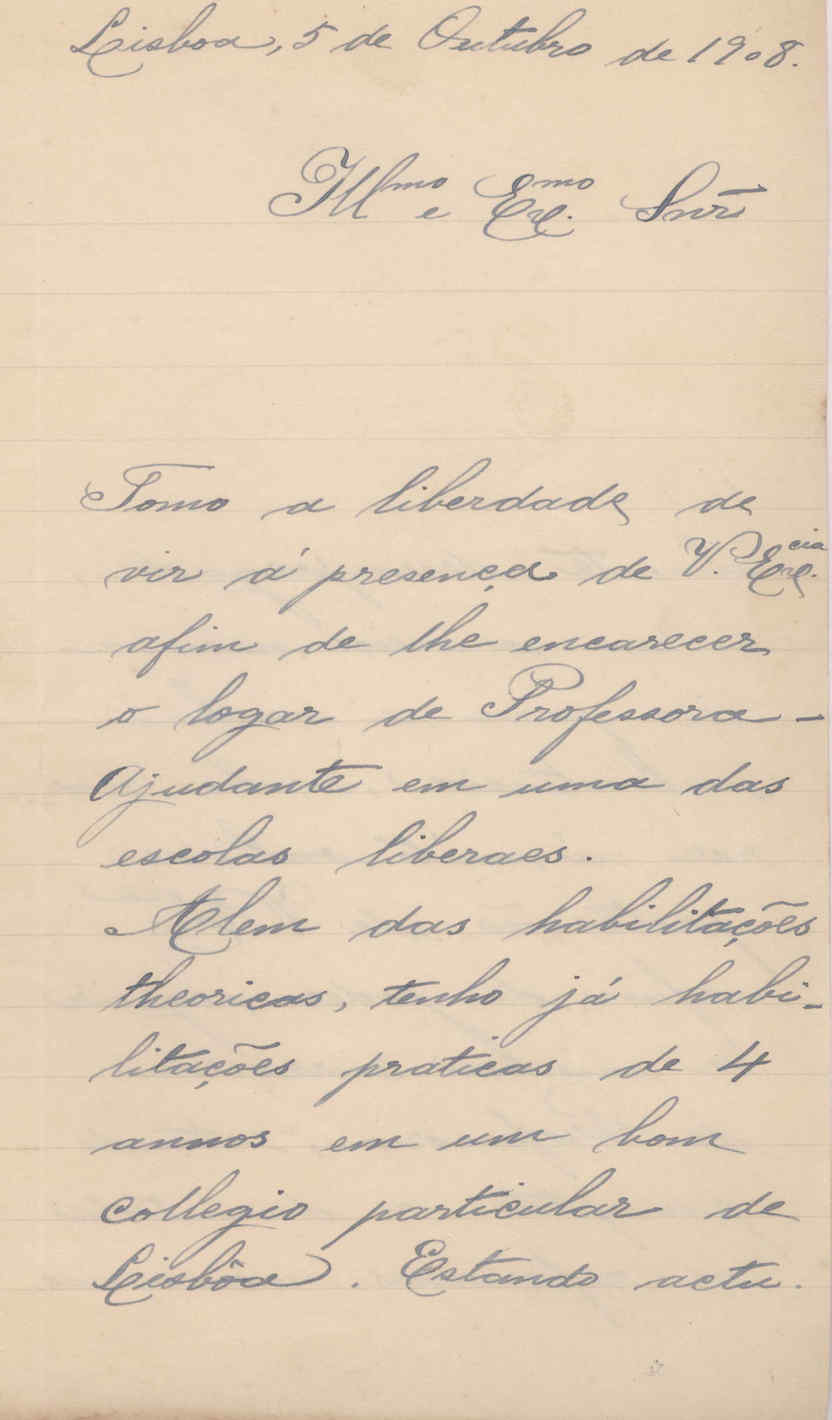 Lisboa, 5 de Outubro de 1908.
Illmo e Exmo. Snr
Tomo a liberdade de
vir á presença de V. Excia.
afim de lhe encarecer
o logar de Professora-
Ajudante em uma das
escolas liberaes.
Alem das habilitações
theoricas, tenho já habi-
litações praticas de 4
annos em um bom
collegio particular de
Lisbôa. Estando actu-